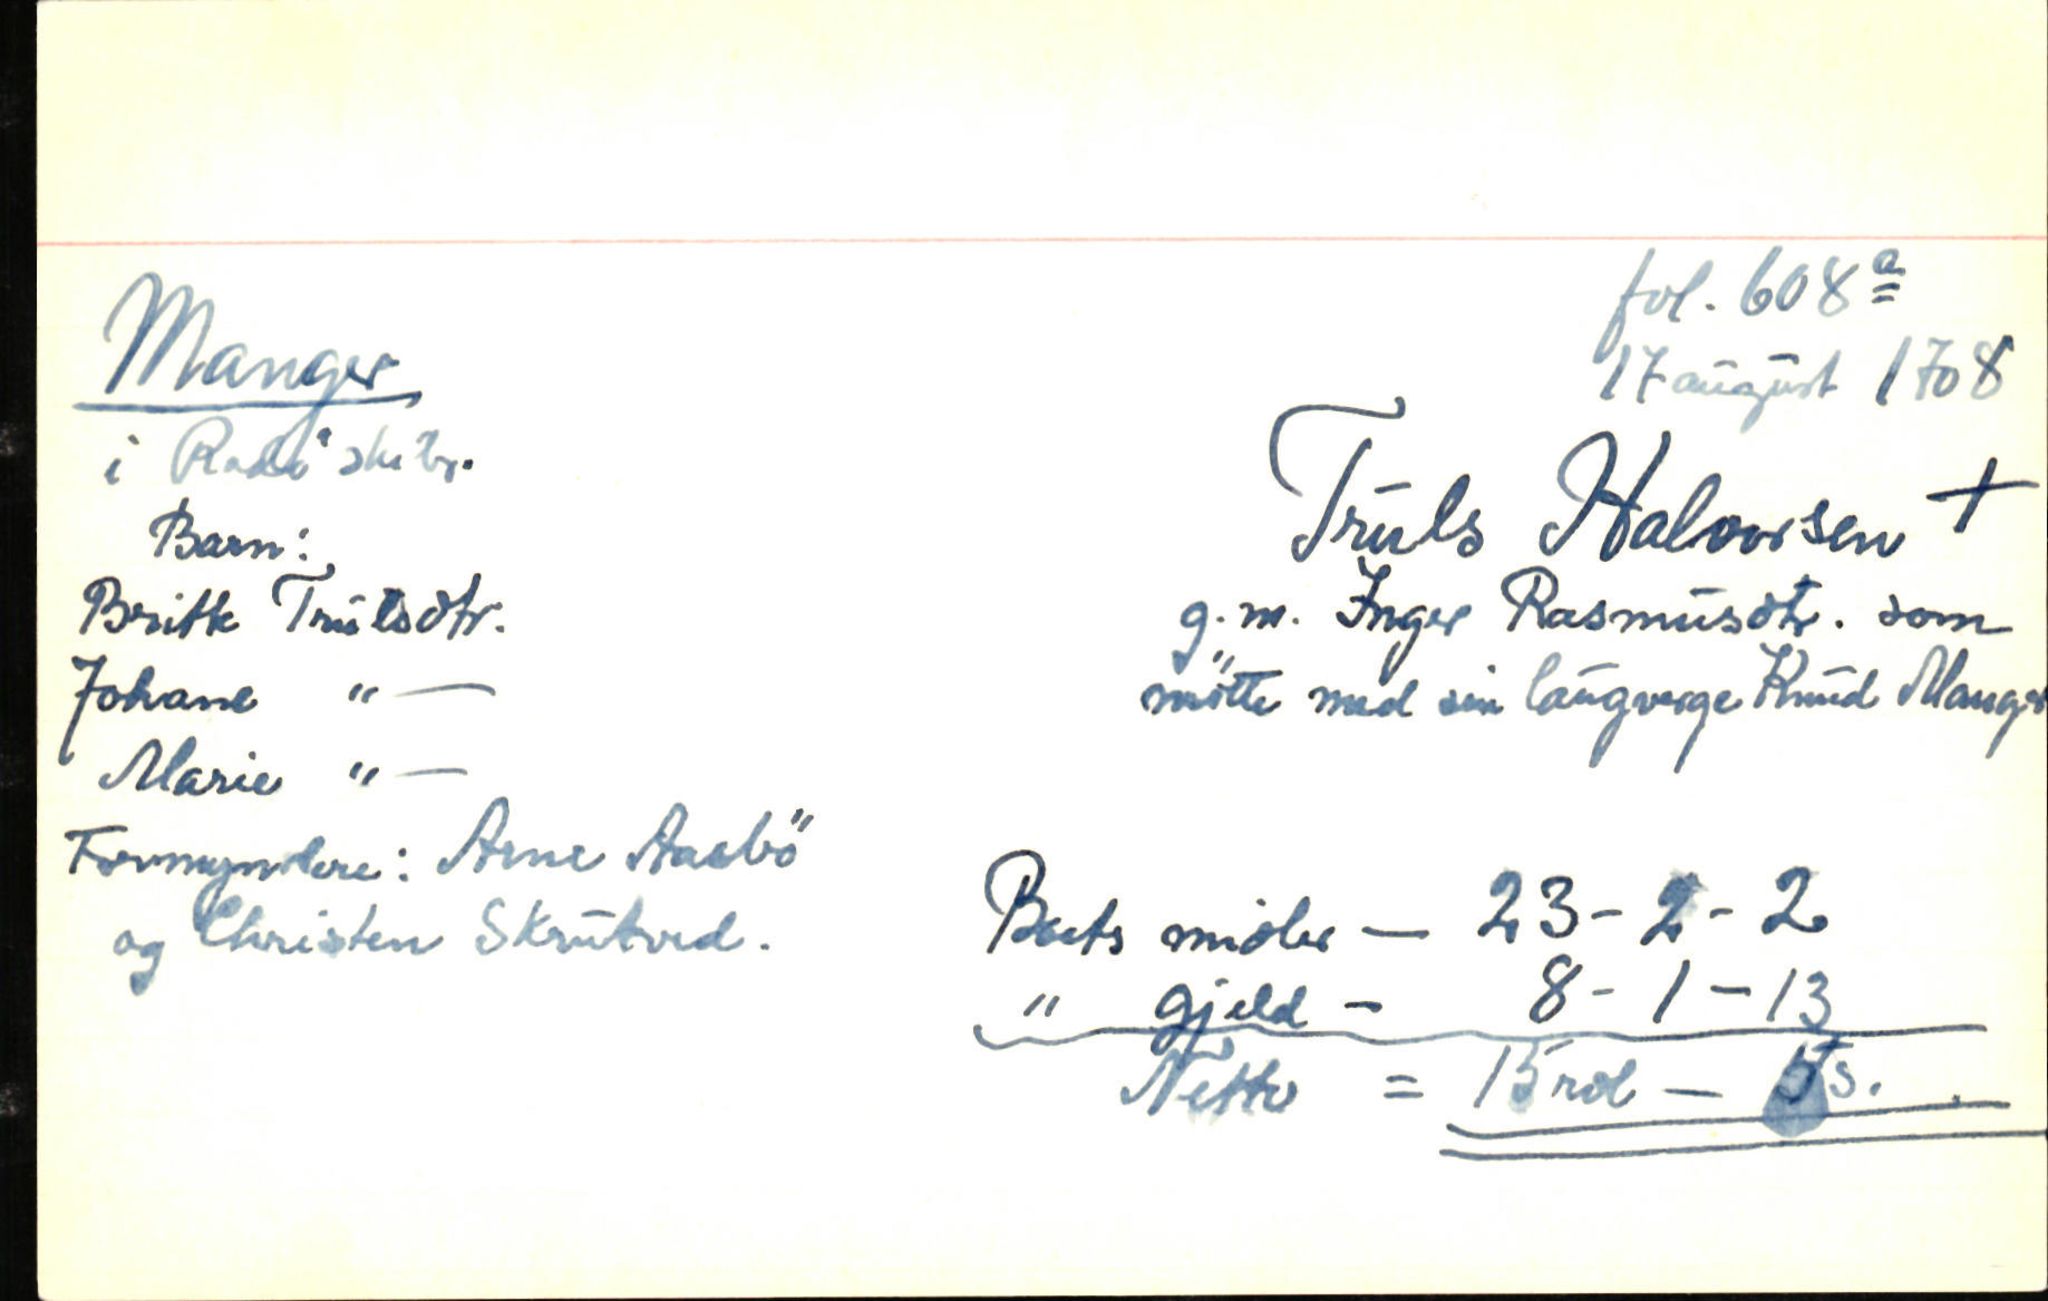 fol. 608a
17 august 1708
Manger
i Radö skibr.
Truls Halvorsen +
g.m. Inger Rasmusdtr. som
mötte med sin laugverge Knud Manger
Barn:
Britte Trulsdtr.
Johane " —
Marie " —
Formyndere: Arne Aasbö
og Christen Skrutved.
Boets midler — 23 - 2 - 2
" gjeld — 8 - 1 - 13
Netto = 15 rdl — 5 s.